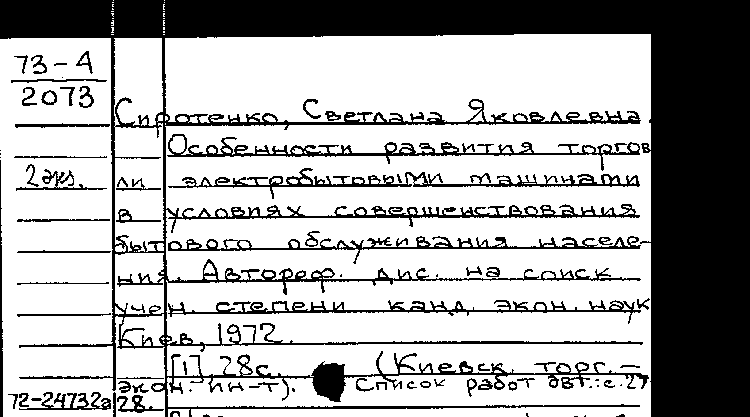 73-А
2073
Сиротенко, Светлана Яковлевна.
Особенности развития торгов
2 экз. ли электробытовыми машинами
в условиях совершенствования
бытового обслуживания населе-
ния. Автореф. дис. на соиск.
учен. степени канд. экон. наук
Киев, 1972.
[1], 28с. (Киевск. торг.-
экон. ин-т). Список работ авт.: с. 27
72-24732а 28.